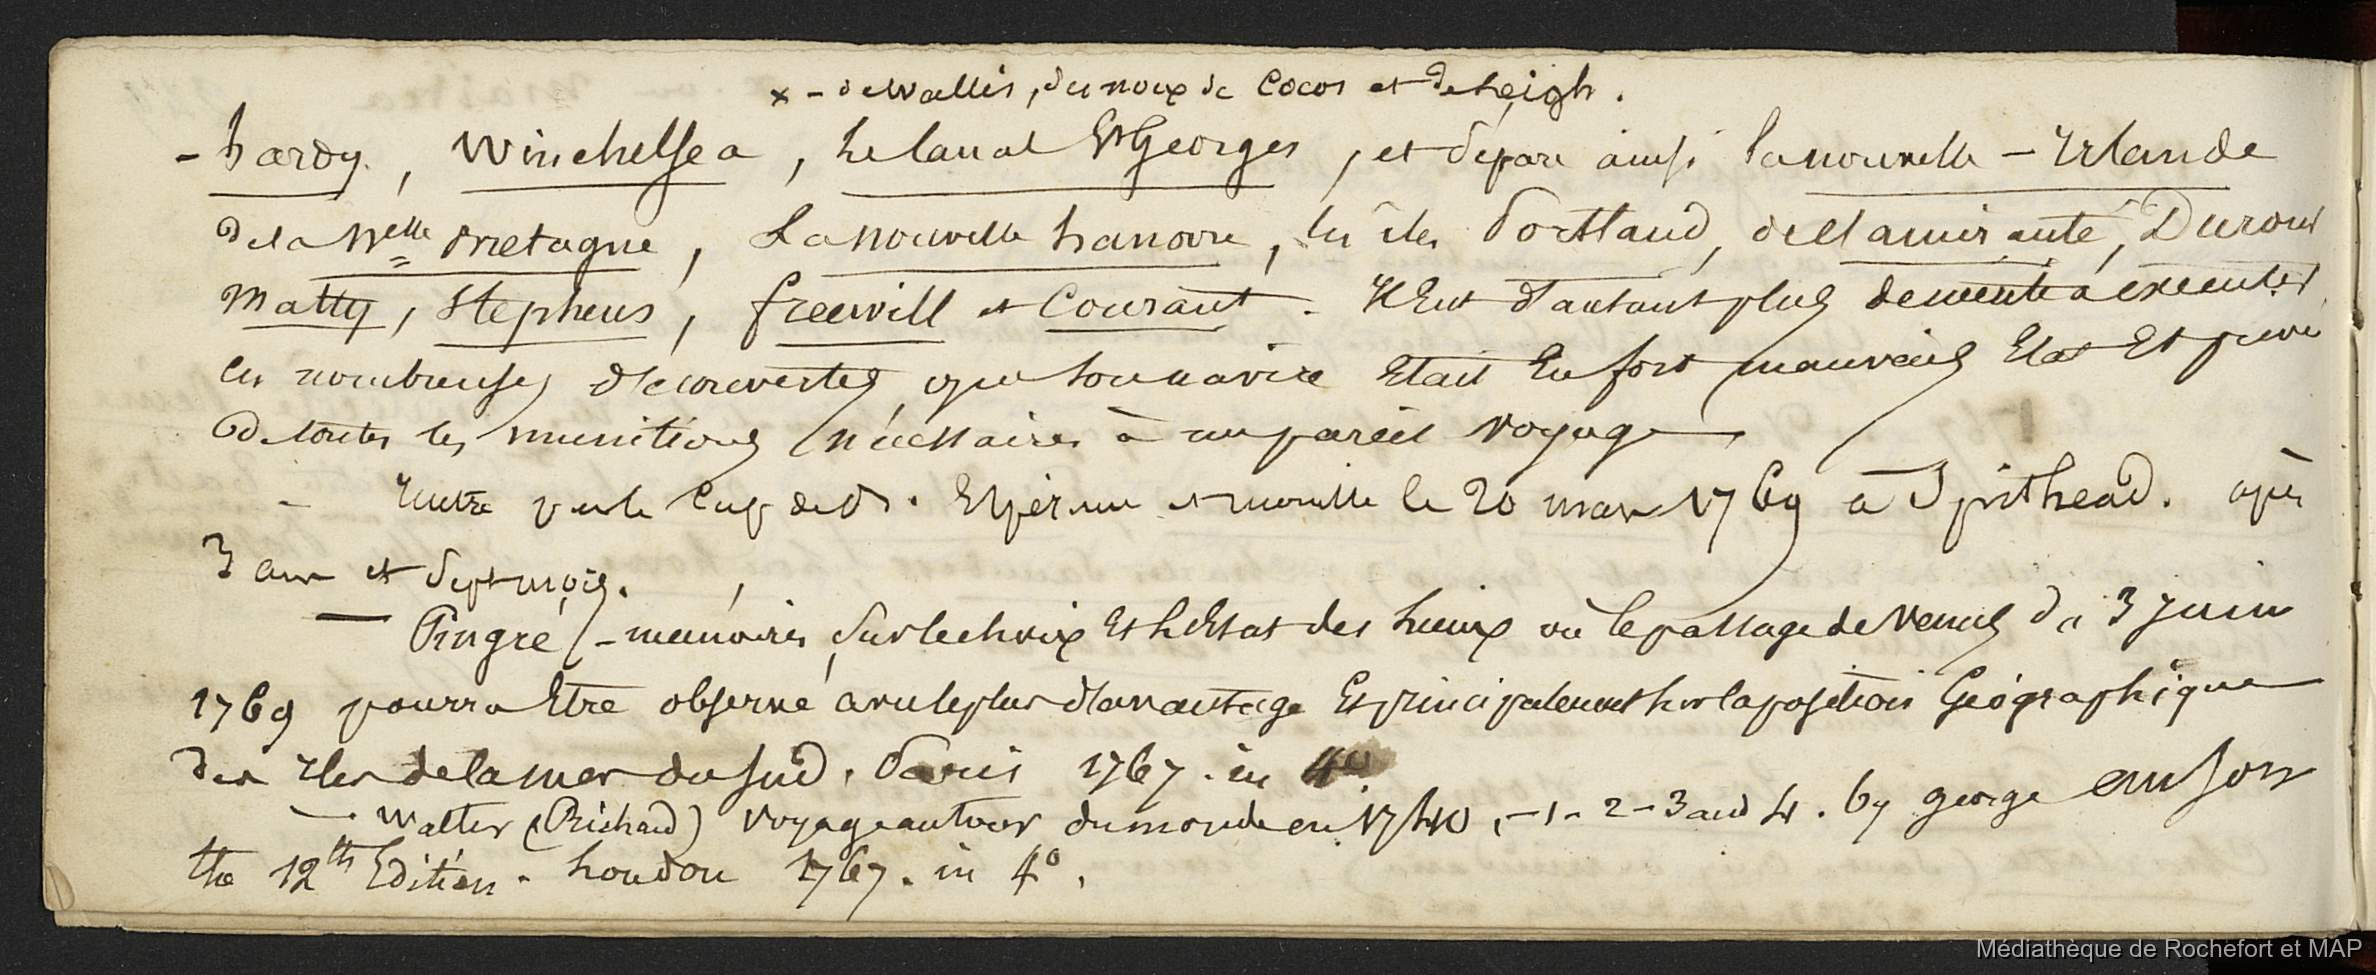 x - de Wallis, des noix de Cocos et de Leigh.
- hardy, Winchelsea, Le Canal St Georges, et separe ainsi la nouvelle - Irlande
de la Nelle Bretagne, La Nouvelle hanovre, les îles Portland, de l'amirauté, Durour
Matty, Stephens, freewill et Courant. Il Eut d'autant plus de merite a executer
les nombreuses découvertes, que son navire Etait En fort mauvais Etat Et privé
de toutes les munitions nécessaires à un pareil voyage.
- Rentra par le Cap de B. Espérance et mouilla le 20 mars 1769 a Spithead. après
3 ans et sept mois.
— Pingré - memoires sur le choix Et L'Etat des Lieux où le passage de Venus du 3 Juin
1769 pourra Etre observé avec le plus d'avantage Et principalement sur la position Géographique
des Iles de la mer du sud. Paris 1767. in 4°
— Walter (Richard) Voyage autour du monde en 1740, - 1 - 2 - 3 and 4. by george anson
the 12th Edition. London 1767. in 4°.